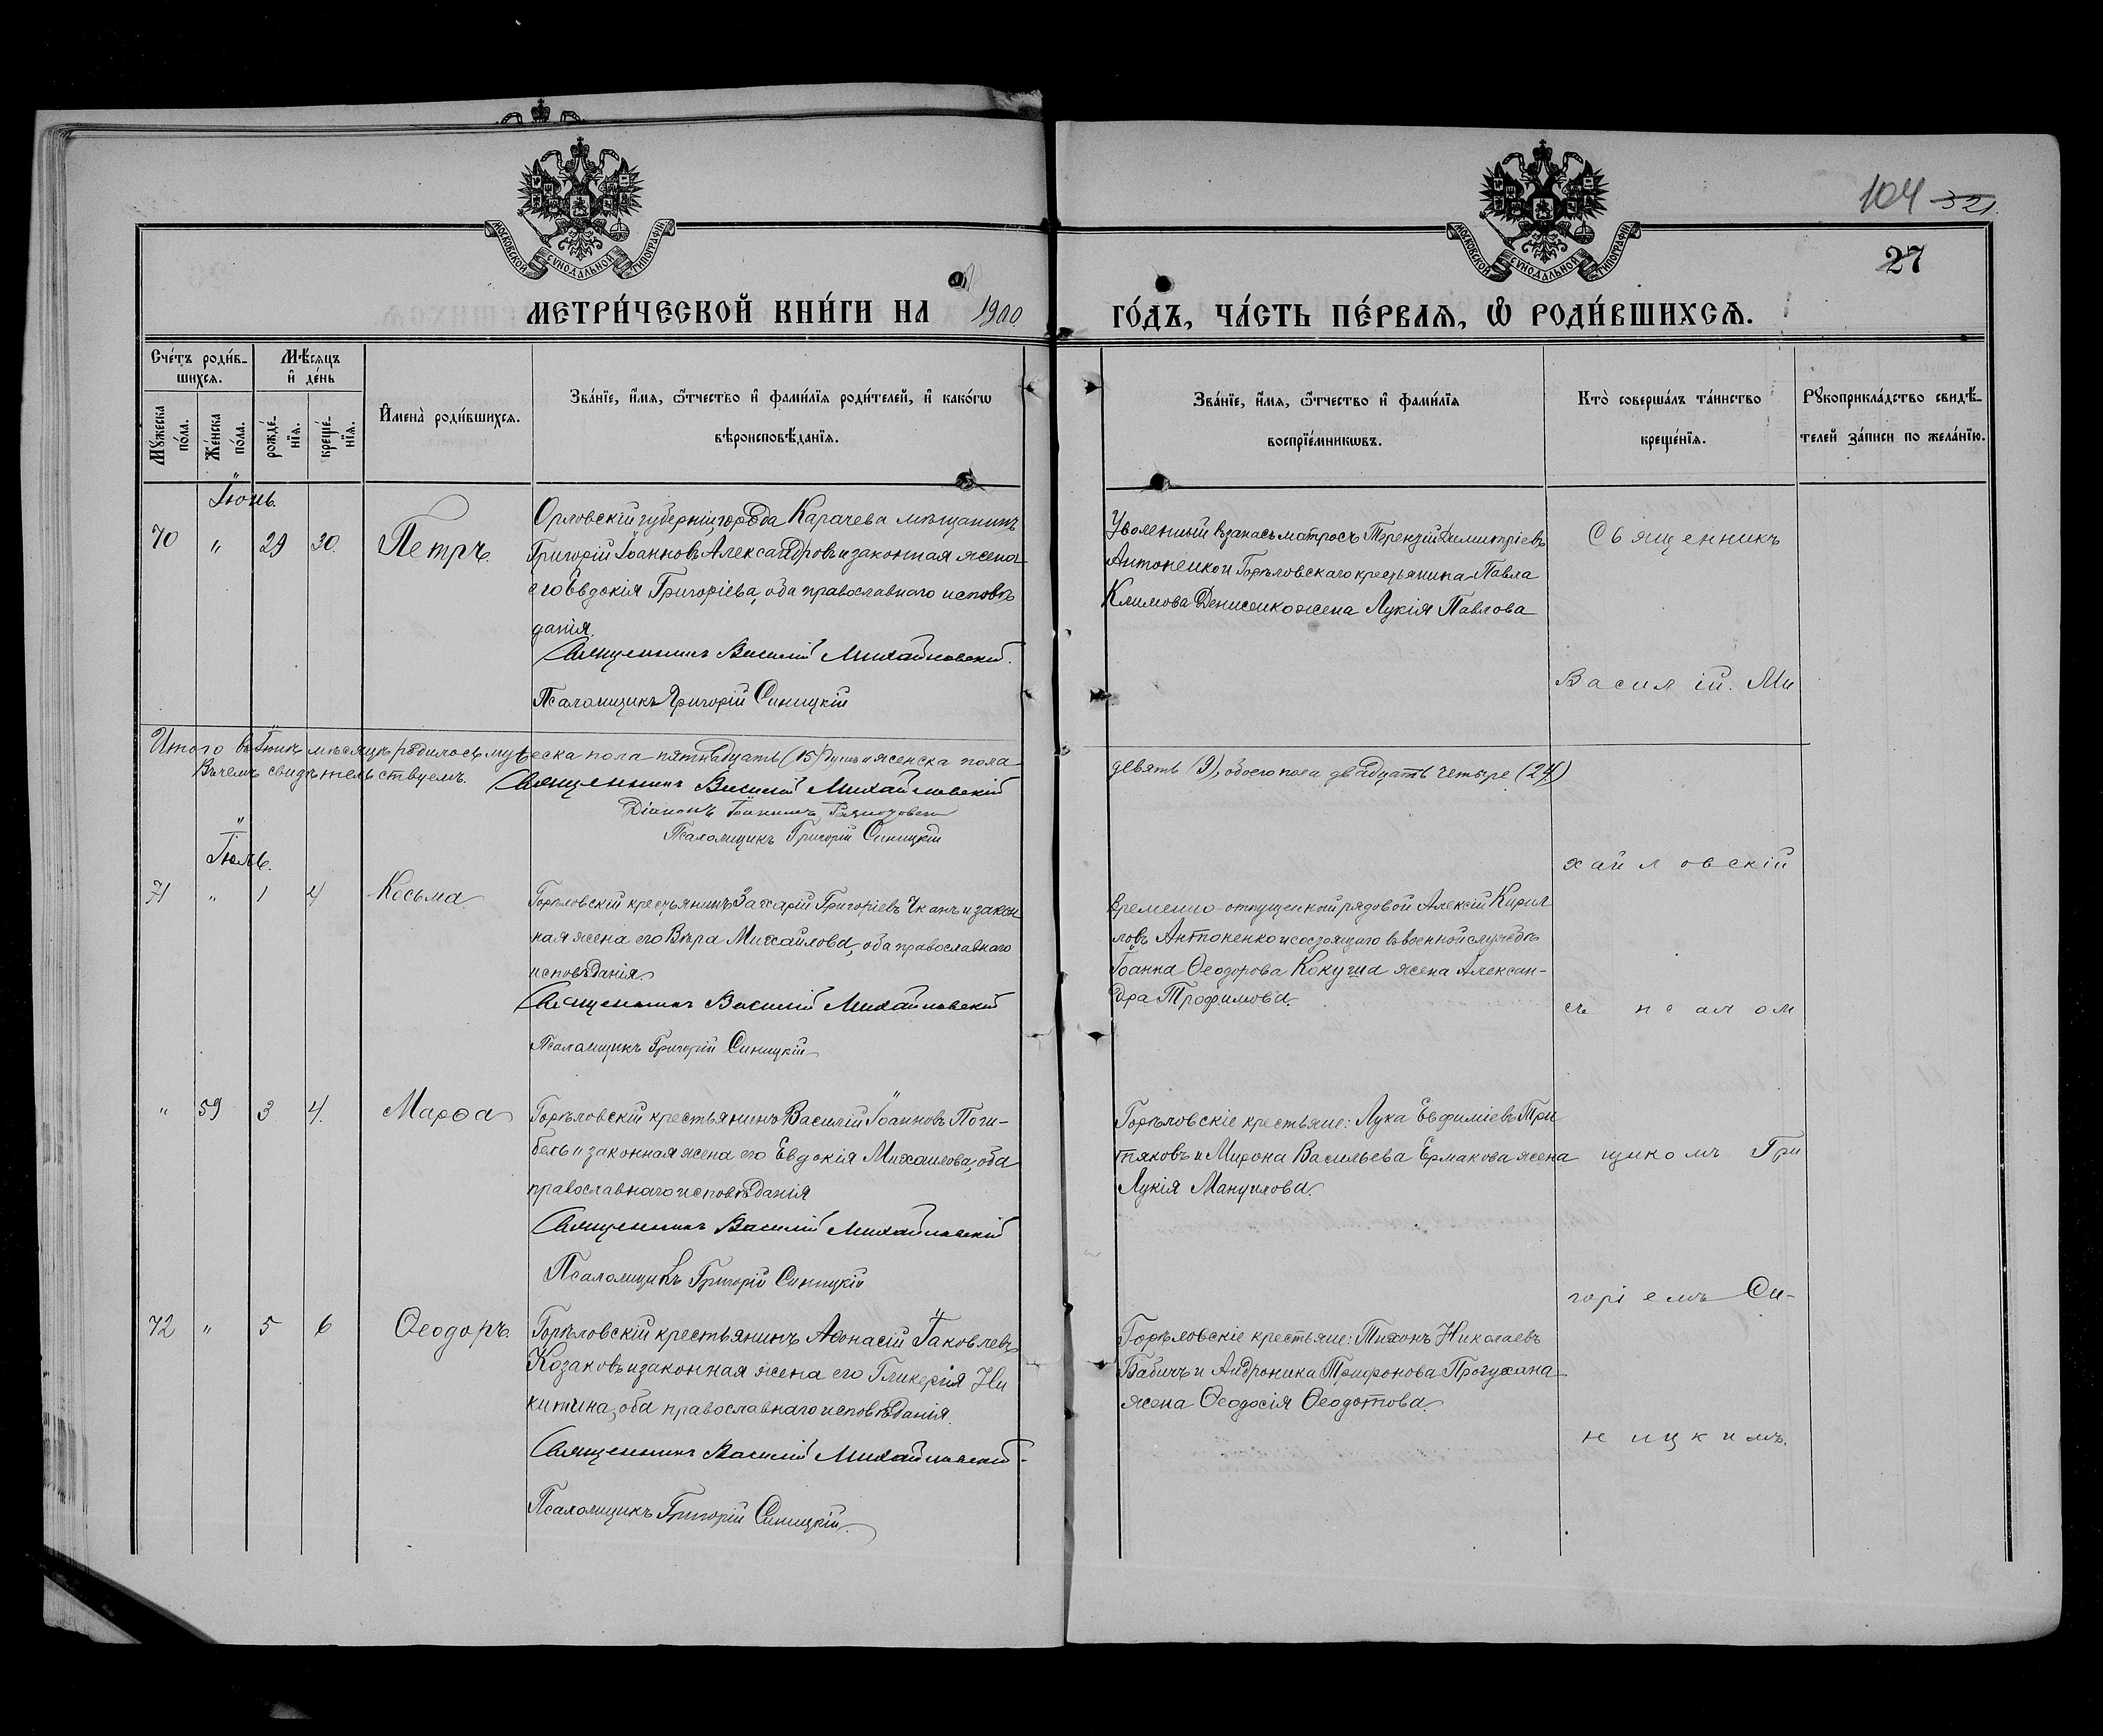 МОСКОВСКОЙ СѴНОДАЛЬНОЙ ТИПОГРАФІИ
МОСКОВСКОЙ СѴНОДАЛЬНОЙ ТИПОГРАФІИ
104 321.
27
МЕТРИ́ЧЕСКОЙ КНИ́ГИ НА 1900 ГО́ДЪ, ЧА́СТЬ ПЕ́РВАѦ, Ѡ РОДИ́ВШИХСѦ.
Сче́тъ роди́в-
шихсѧ.
Мꙋ́жеска по́ла.
Же́нска по́ла.
Мѣ́сяцъ
и҆ де́нь
рожде́-
нїѧ.
креще́-
нїѧ.
И҆мена̀ роди́вшихсѧ.
Зва́нїе, и҆́мѧ, ѻ҆́тчество и҆ фами́лїѧ роди́телей, и҆ како́гѡ
вѣроисповѣ́данїѧ.
Зва́нїе, и҆́мѧ, ѻ҆́тчество и҆ фами́лїѧ
воспрїе́мникѡвъ.
Кто̀ соверша́лъ та́инство
креще́нїѧ.
Рꙋкоприкла́дство свидѣ́-
телей за́писи по жела́нїю.
Іюнь.
70 " 29 30. Петръ.
Орловскій губерніи, города Карачева мѣщанинъ
Григорій Іоанновъ Александровъ и законная жена
его Евдокія Григоріева, оба православнаго исповѣ
данія.
Священникъ Василій Михайловскій.
Псаломщикъ Григорій Синицкій
Уволенный въ запасъ матросъ Терентій Димитріевъ
Антоненко и Горѣловскаго крестьянина Павла
Климова Денисенко жена Лукія Павлова
Священникъ
Василій. Ми
Итого въ Іюнѣ мѣсяцѣ родилось мужеска пола пятнадцать (15) душъ и женска пола
девять (9), обоего пола двадцать четыре (24)
Въ чемъ свидѣтельствуемъ. Священникъ Василій Михайловскій
Діаконъ
Псаломщикъ Григорій Синицкій
Іюль.
хайловскій
71 " 1 4 Косьма
Горѣловскій крестьянинъ Захарій Григоріевъ Чканъ и закон
ная жена его Вѣра Михаилова, оба православнаго
исповѣданія.
Священникъ Василій Михайловскій
Псаломщикъ Григорій Синицкій
Временно-отпущенный рядовой Алексій Кирил
ловъ Антоненко и состоящаго въ военной службѣ
Іоанна Ѳеодорова Кокуша жена Алексан-
дра Трофимова.
съ псалом
" 59 3 4. Марѳа
Горѣловскій крестьянинъ Василій Іоанновъ Поги-
бель и законная жена его Евдокія Михаилова, оба
православнаго исповѣданія
Священникъ Василій Михайловскій
Псаломщикъ Григорій Синицкій
Горѣловскіе крестьяне: Лука Евфиміевъ Три
тяковъ и Мирона Васильева Ермакова жена
Лукія Мануилова.
щикомъ Гри
горіемъ Си-
72 " 5 6 Ѳеодоръ.
Горѣловскій крестьянинъ Аѳонасій Іаковлевъ
Козаковъ и законная жена его Гликерія Ни
китина, оба православнаго исповѣданія.
Священникъ Василій Михайловскій
Псаломщикъ Григорій Синицкій.
Горѣловскіе крестьяне: Тихонъ Николаевъ
Бабичъ и Андроника Трифонова Прогухана
жена Ѳеодосія Ѳеодотова.
ницкимъ.